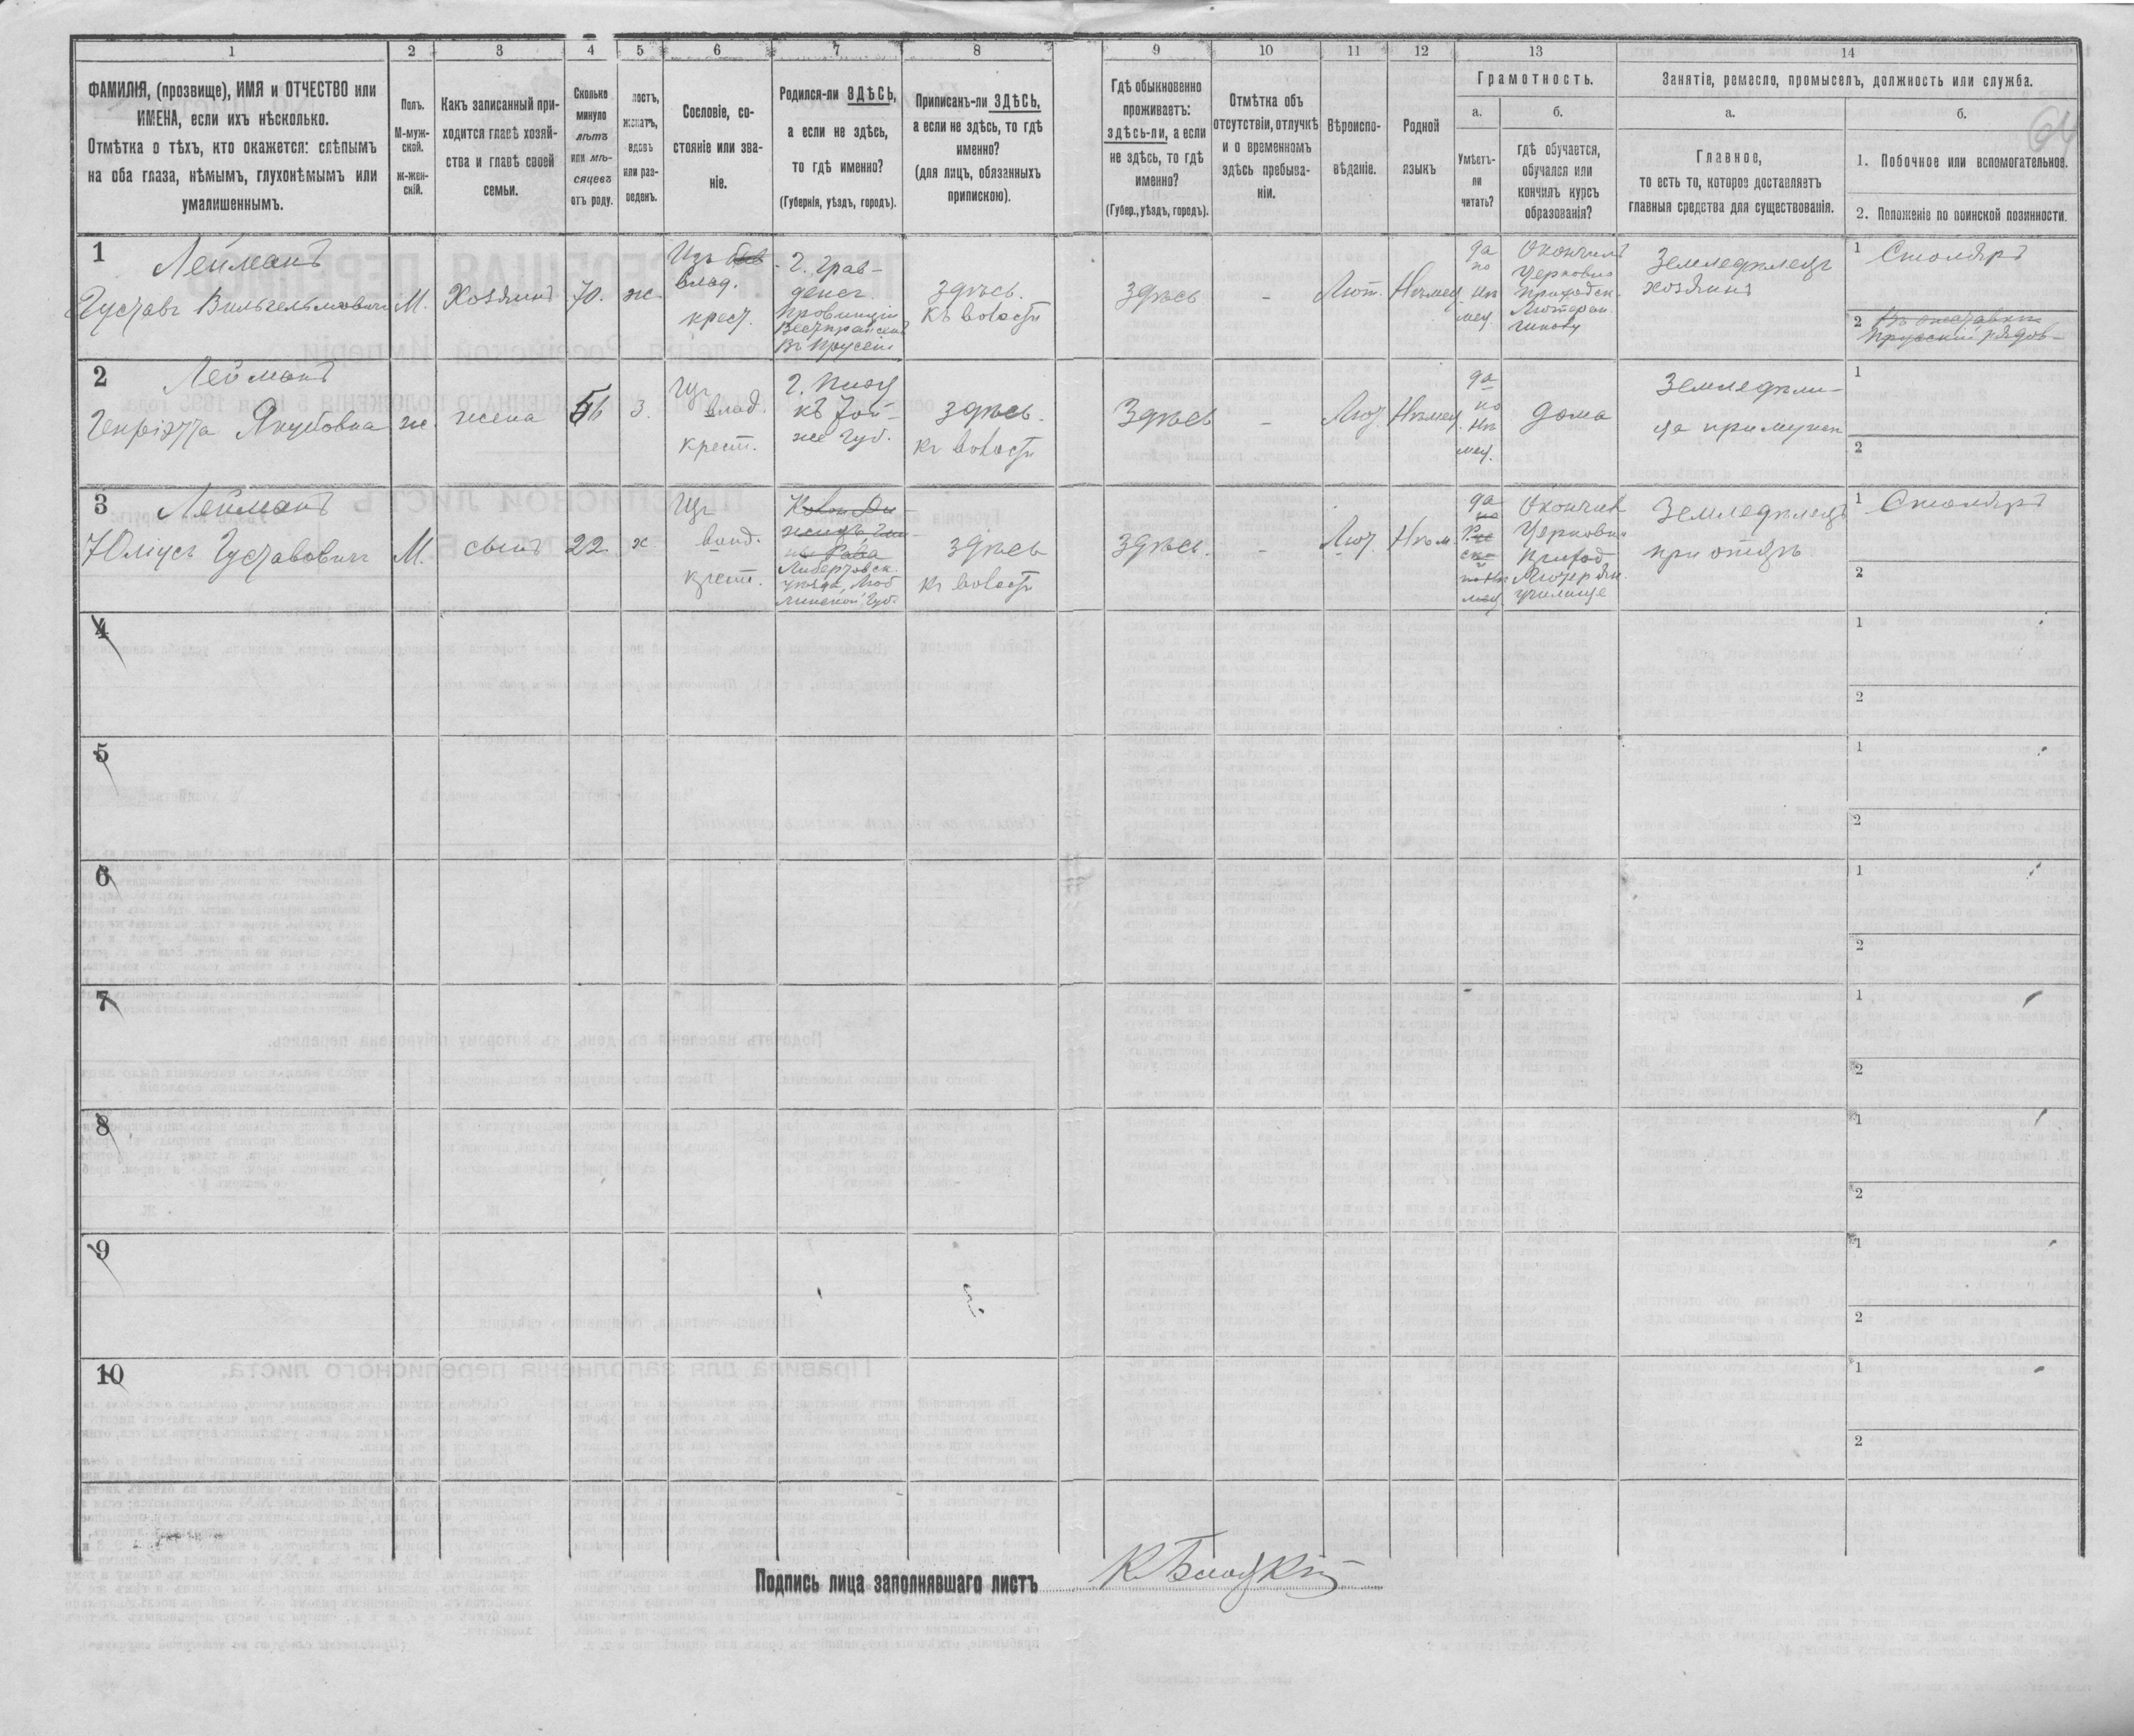 1
2
3
4
5
6
7
8
9
10
11
12
13
14
ФАМИЛІЯ, (прозвище), ИМЯ и ОТЧЕСТВО или
ИМЕНА, если ихъ нѣсколько.
Отмѣтка о тѣхъ, кто окажется: слѣпымъ
на оба глаза, нѣмымъ, глухонѣмымъ или
умалишеннымъ.
Полъ.
М-муж-
ской.
ж-жен-
скій.
Какъ записанный при-
ходится главѣ хозяй-
ства и главѣ своей
семьи.
Сколько
минуло
лѣтъ
или мѣ-
сяцевъ
отъ роду.
лостъ,
женатъ,
вдовъ
или раз-
веденъ.
Сословіе, со-
стояніе или зва-
ніе.
Родился-ли ЗДѢСЬ,
а если не здѣсь,
то гдѣ именно?
(Губернія, уѣздъ, городъ).
Приписанъ-ли ЗДѢСЬ,
а если не здѣсь, то гдѣ
именно?
(для лицъ, обязанныхъ
припискою).
Гдѣ обыкновенно
проживаетъ:
здѣсь-ли, а если
не здѣсь, то гдѣ
именно?
(Губер., уѣздъ, городъ).
Отмѣтка объ
отсутствіи, отлучкѣ
и о временномъ
здѣсь пребыва-
ніи.
Вѣроиспо-
вѣданіе.
Родной
языкъ
Грамотность.
а.
Умѣетъ-
ли
читать?
б.
гдѣ обучается,
обучался или
кончилъ курсъ
образованія?
Занятіе, ремесло, промыселъ, должность или служба.
а.
Главное,
то есть то, которое доставляетъ
главныя средства для существованія.
б.
64
1. Побочное или вспомогательное.
2. Положеніе по воинской повинности.
1
Лейманъ
Густавъ Вильгельмовичъ
М.
Хозяинъ
70.
ж.
Изъ
влад.
крест.
г. Грав-
денсъ.
Провинціи
Вестпрайскъ
Въ Прусеіи
здѣсь.
къ волости
здѣсь
-
Лют.
Нѣмец.
да
по
нѣ
мец.
Окончилъ
Церковно
приходск.
Лютеран.
Земледѣлецъ
хозяинъ
1 Столяръ
2 Въ отставкѣ
Прусскій рядов-
2
Лейманъ
Генріэтта Якубовна
ж.
жена
з.
Изъ
влад.
крест.
къ той-
же губ.
здѣсь.
къ волости
Здѣсь
-
Лют.
Нѣмец.
да
по
нѣ
мец.
дома
Земледѣли-
ца при мужѣ
1
2
3
Лейманъ
Юліусъ Густавовичъ
М.
сынъ
22
х
Изъ
влад.
крест.
Любартовск.
уѣзда, Люб
линской Губ.
здѣсь
къ волости
здѣсь.
-
Лют.
Нѣм.
да
по
Окончилъ
Церковно
приход
Лютеран.
училище
Земледѣлецъ
при отцѣ
1 Столяръ
2
4
1
2
5
1
2
6
1
2
7
1
2
8
1
2
9
1
2
10
1
2
Подпись лица заполнявшаго листъ